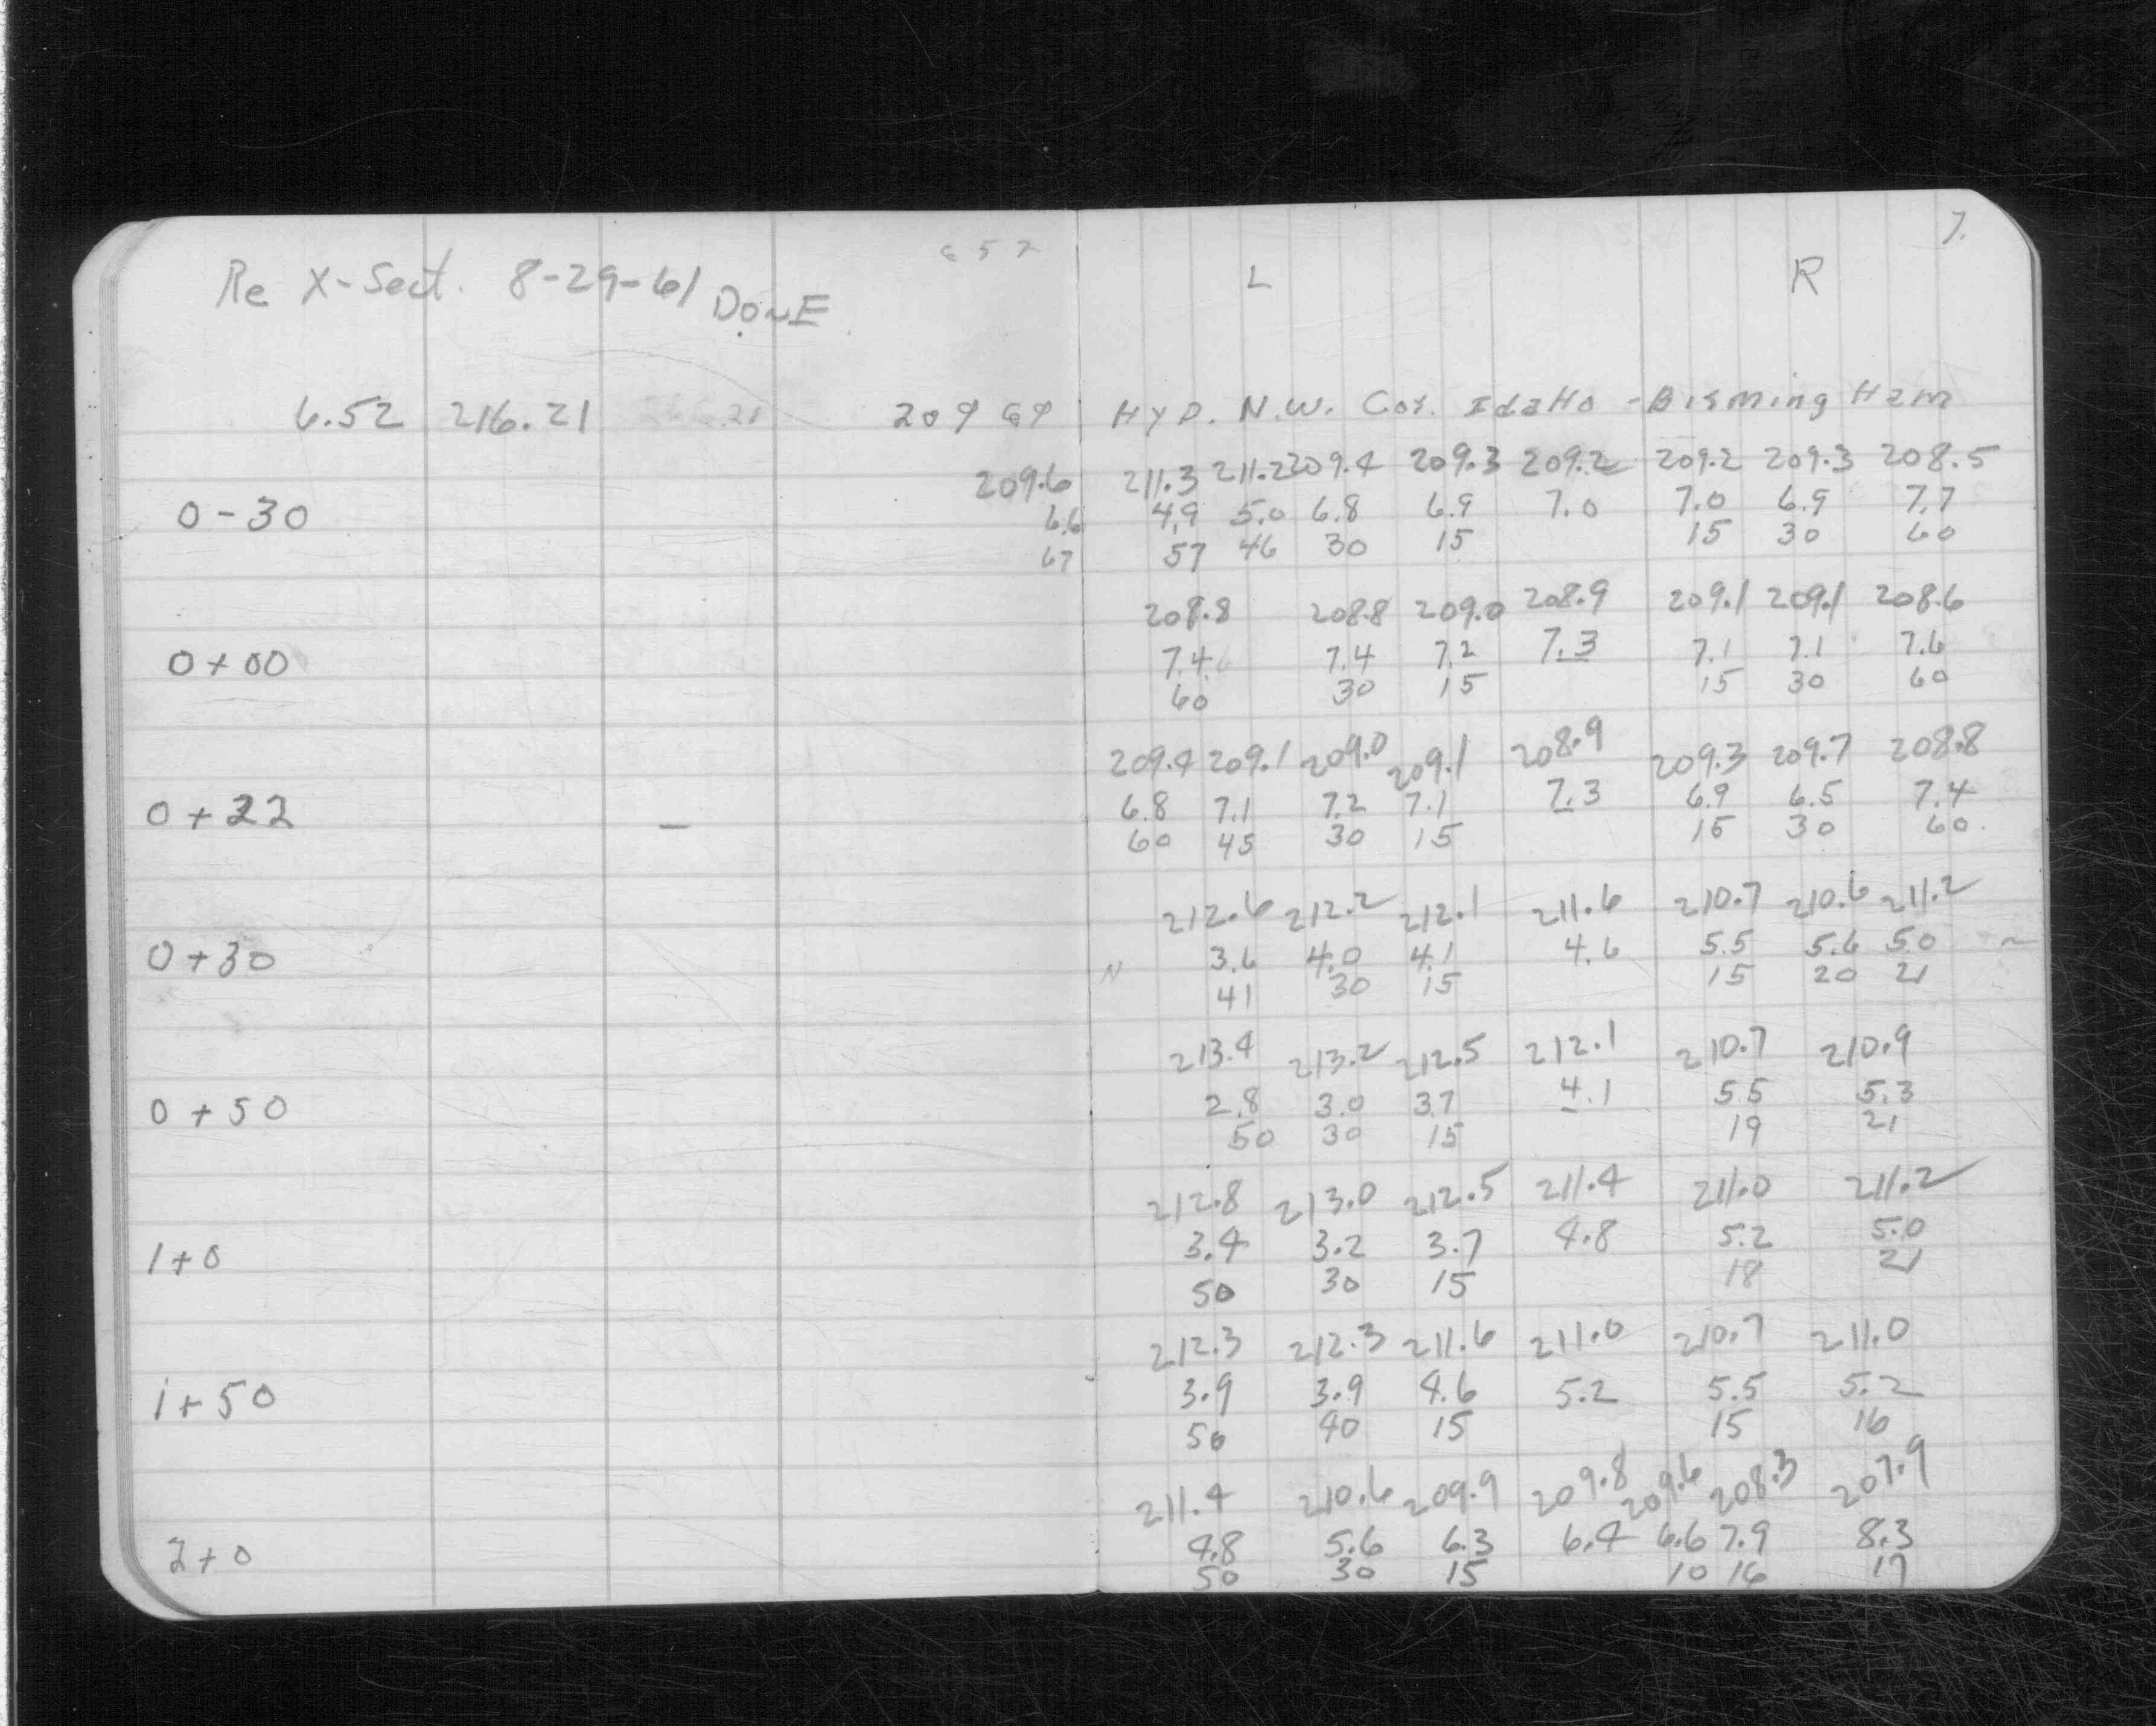 7.
Re X-Sect. 8-29-61 DONE 652
L R
6.52 216.21 209 69 HYD. N.W. Cor. IdaHo - Birming Ham
209.6 211.3 211.2 209.4 209.3 209.2 209.2 209.3 208.5
0-30 6.6 4.9 5.0 6.8 6.9 7.0 7.0 6.9 7.7
67 57 46 30 15 15 30 60
208.8 208.8 209.0 208.9 209.1 209.1 208.6
0+00 7.4 7.4 7.2 7.3 7.1 7.1 7.6
60 30 15 15 30 60
209.4 209.1 209.0 209.1 208.9 209.3 209.7 208.8
0+22 - 6.8 7.1 7.2 7.1 7.3 6.9 6.5 7.4
60 45 30 15 15 30 60
212.6 212.2 212.1 211.6 210.7 210.6 211.2
0+30 N 3.6 4.0 4.1 4.6 5.5 5.6 5.0 ~
41 30 15 15 20 21
213.4 213.2 212.5 212.1 210.7 210.9
0+50 2.8 3.0 3.7 4.1 5.5 5.3
50 30 15 19 21
212.8 213.0 212.5 211.4 211.0 211.2
1+0 3.4 3.2 3.7 4.8 5.2 5.0
50 30 15 18 21
212.3 212.3 211.6 211.0 210.7 211.0
1+50 3.9 3.9 4.6 5.2 5.5 5.2
50 40 15 15 16
211.4 210.6 209.9 209.8 209.6 208.3 207.9
2+0 4.8 5.6 6.3 6.4 6.6 7.9 8.3
50 30 15 10 16 17